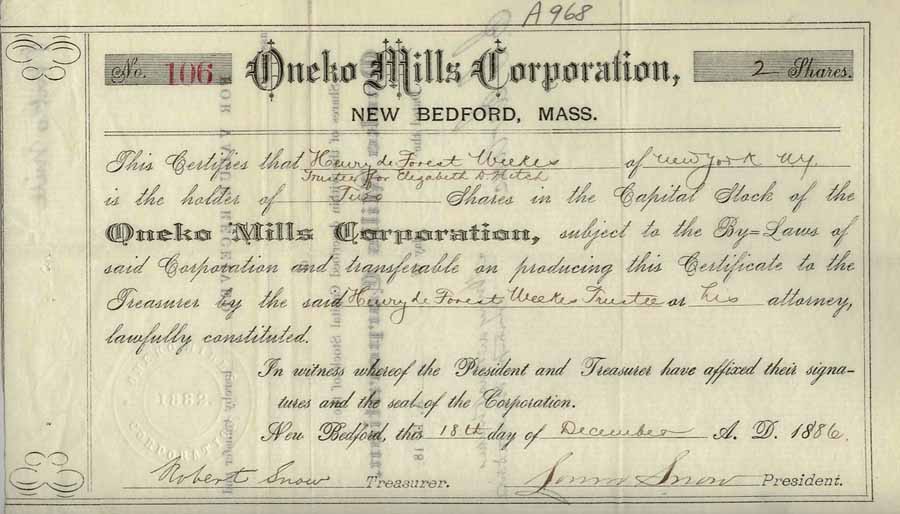 A968
No. 106 Oneko Mills Corporation, 2 Shares.
NEW BEDFORD, MASS.
This Certifies that Henry de Forest Weekes of New York N.Y.
Trustee for Elizabeth D. Hitch
is the holder of Two Shares in the Capital Stock of the
Oneko Mills Corporation, subject to the By=Laws of
said Corporation and transferable on producing this Certificate to the
Treasurer by the said Henry de Forest Weekes Trustee or his attorney,
lawfully constituted.
In witness whereof the President and Treasurer have affixed their signa-
tures and the seal of the Corporation.
New Bedford, this 18th day of December A. D. 1886.
1882
CORPORATION
Robert Snow Treasurer. Snow President.